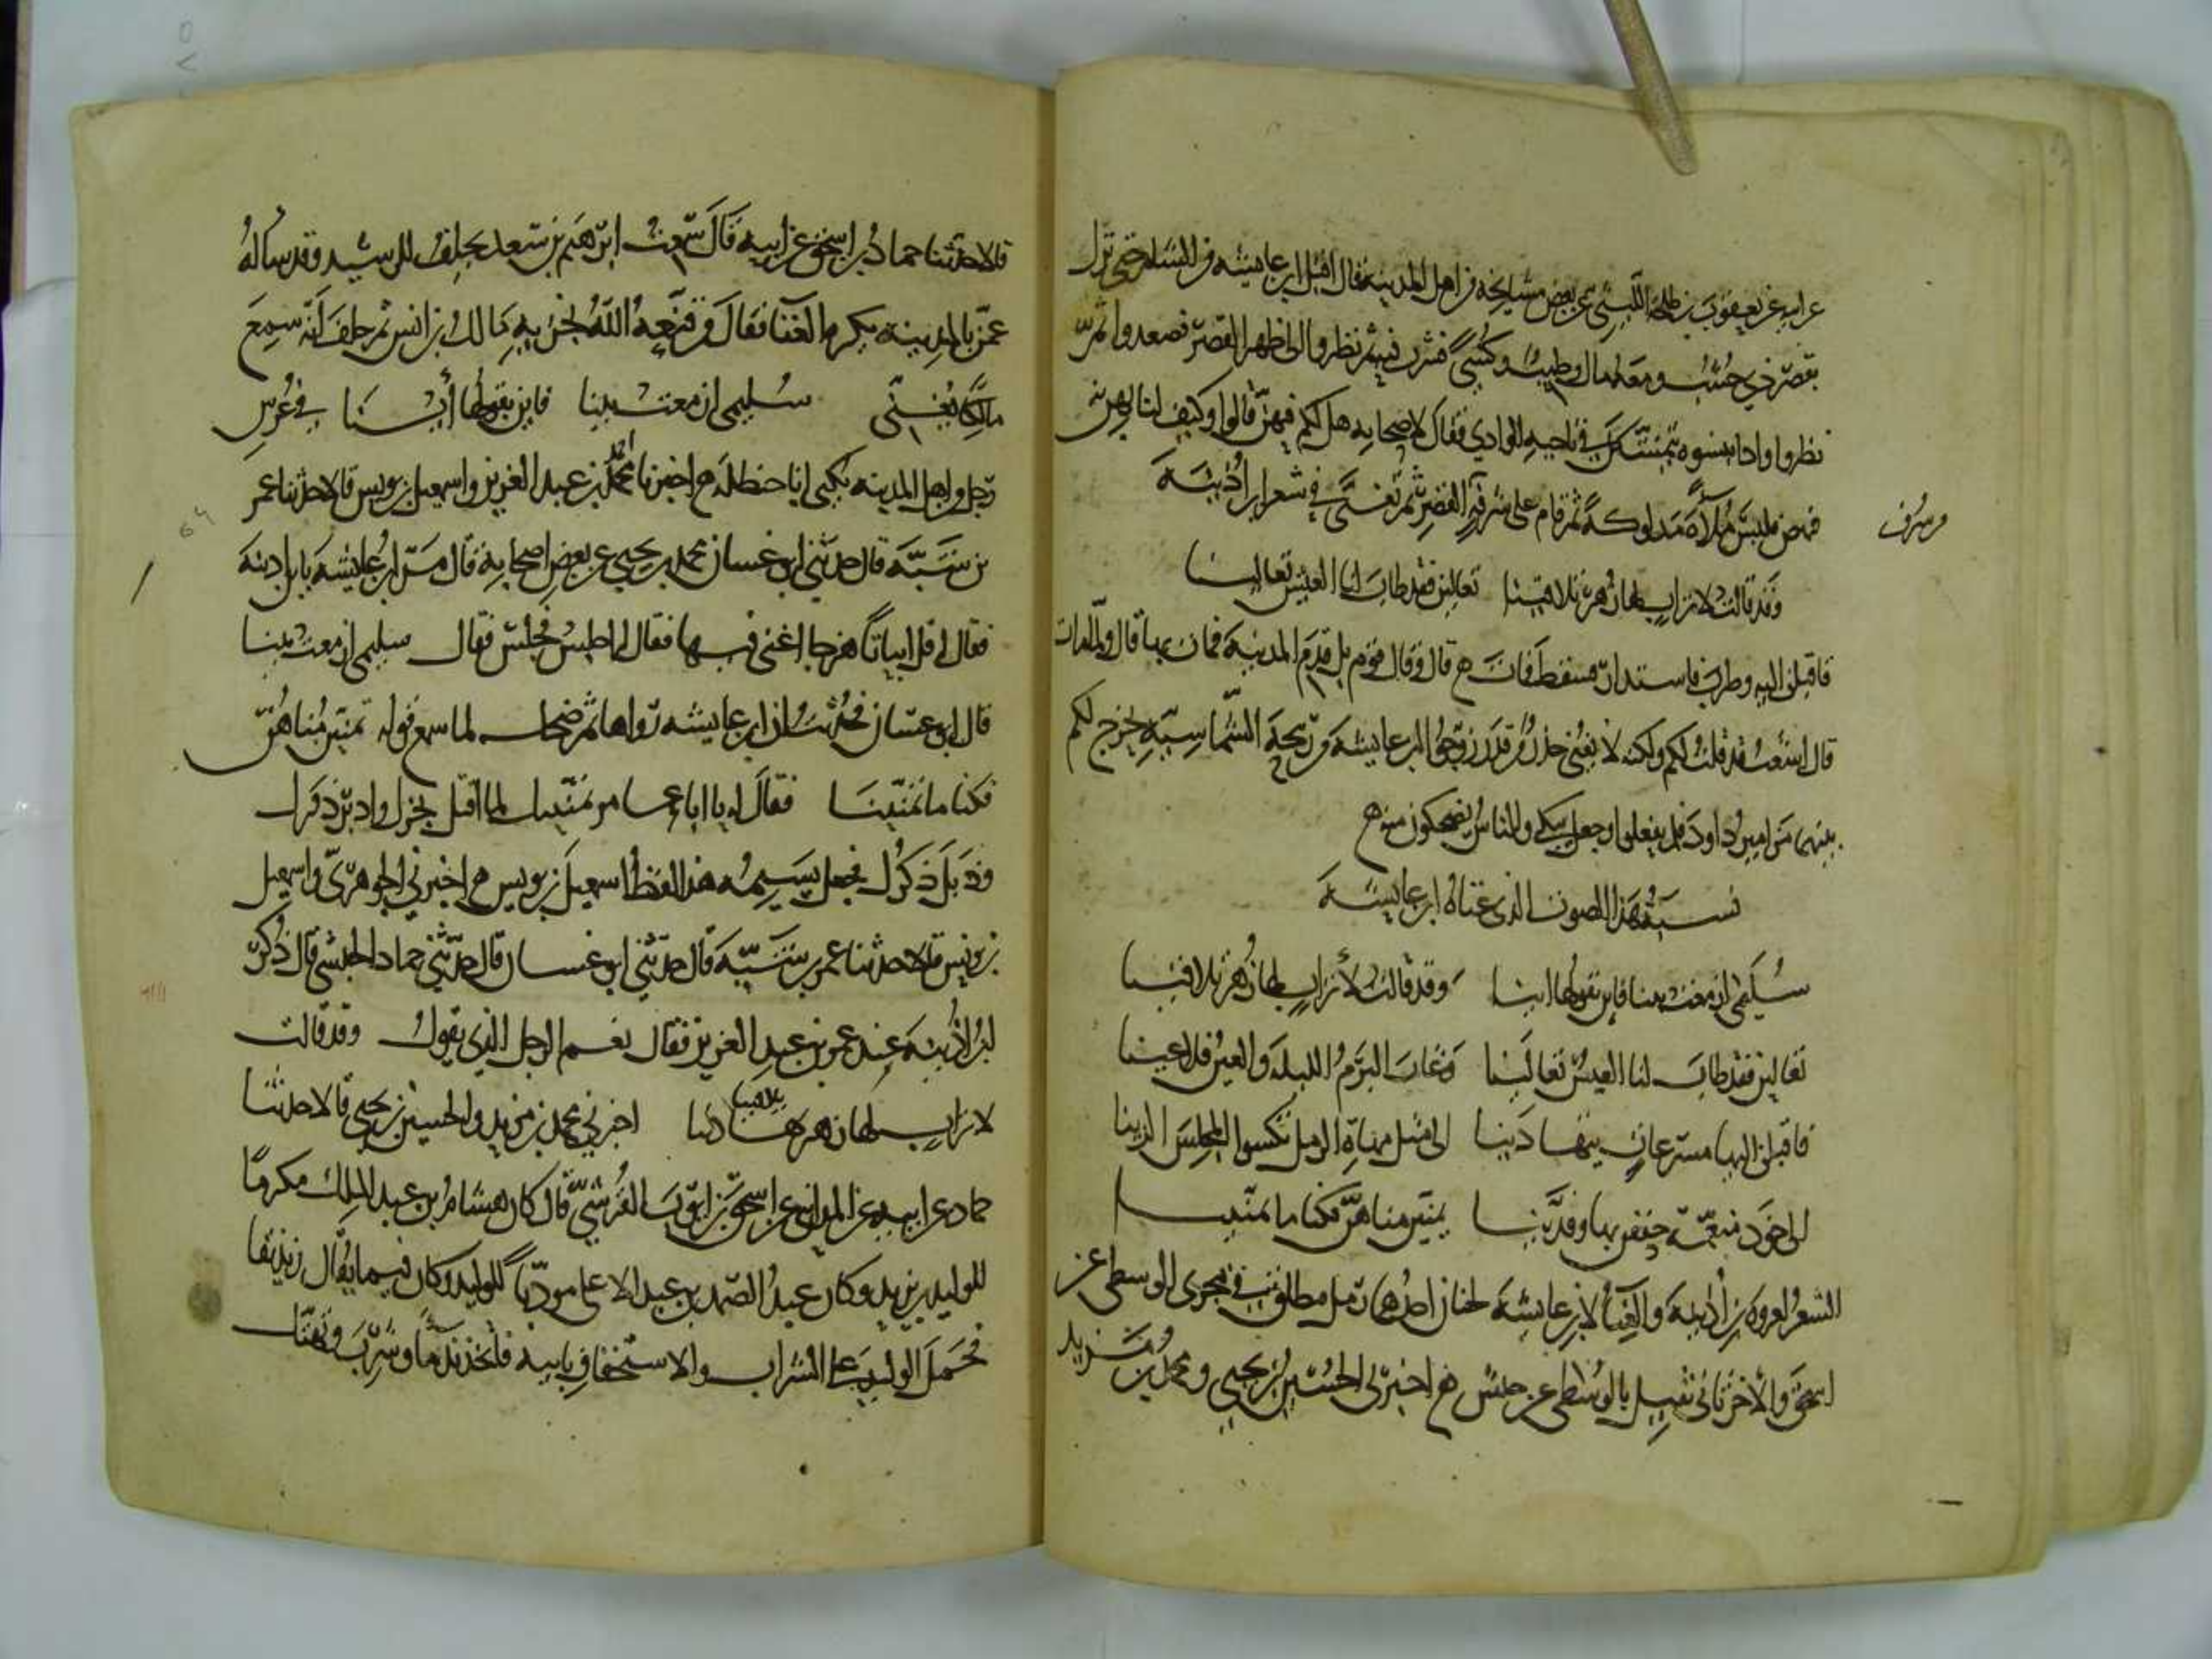 عن ابيه عن يعقوب بن طلحة الليثي عن بعض مشايخه من اهل المدينة قال اقبل ابن عايشه من الشام حتى نزل
بقصر ذي خشب ومعه مال وطيب وكسي فشرب فيه ثم نظروا الى ظهر القصر فصعدوا ثم
نظروا واذا بنسوه يتمشين في ناحيه الوادي فقال لاصحابه هل لكم فيهن قالوا وكيف لنا بهن
فنهض فلبس ملاءة مدلوكة ثم قام على شرفة القصر ثم تغنى في شعر ابن اذينة
من شرف
وقد قالت لاتراب لها زهر تلاقينا تعالين فقد طاب لنا العيش تعالينا
فاقبلن اليه وطرب فاستدار فسقط فمات قال وقال قوم بل قدم المدينة فمات بها قال ولما مات
قال اشعب قد قلت لكم ولكنه لا يغني حذر من قدر زوجوا ابن عايشة من ربيحة الشماسية يخرج لكم
بينهما مزامير داود فلم يفعلوا وجعل يبكي والناس يضحكون منه
نسبة هذا الصوت الذي غناه ابن عايشة
سليمى ازمعت بينا فاين تقولها اينا وقد قالت لأتراب لها زهر تلاقينا
تعالين فقد طاب لنا العيش تعالينا وغاب البرم الليلة والعين فلا عينا
فاقبلن اليها مسرعات يتهادينا الى مثل مهاة الرمل تكسوا المجلس الزينا
الى خود منعمة حففن بها وفدينا تمنين مناهن فكنا ما تمنينا
الشعر لعروة بن أذينة والغناء لابن عايشة لحنان احدهما رمل مطلق في مجرى الوسطى عن
اسحق والآخر ثاني ثقيل بالوسطى عن حبش اخبرني الحسين بن يحيى ومحمد بن مزيد
قالا حدثنا حماد بن اسحق عن ابيه قال سمعت ابرهيم بن سعد يحلف للرشيد وقد ساله
عمن بالمدينة يكره الغنا فقال من قنعه الله بخزيه مالك بن انس ثم حلف أنه سمع
مالكا يغني سليمى ازمعت بينا فاين تقولها أينا في عرس
رجل من اهل المدينه يكنى ابا حنظله اخبرنا احمد بن عبد العزيز واسمعيل بن يونس قالا حدثنا عمر
بن شبة قال حدثني ابو غسان محمد بن يحيى عن بعض اصحابه قال مر ابن عايشة بابن اذينة
فقال له قل ابياتا هزجا اغني فيها فقال له اجلس فجلس فقال سليمى ازمعت بينا
قال ابو غسان فحدثت ان ابن عايشه رواها ثم ضحك لما سمع قوله تمنين مناهن
فكنا ما تمنينا فقال له يا ابا عامر تمنينك لما اقبل بخرك وادبر ذفرك
وذبل ذكرك فجعل يشتمه هذا لفظ اسمعيل بن يونس اخبرني الجوهري واسمعيل
بن يونس قالا حدثنا عمر بن شبة قال حدثني ابو غسان قال حدثني حماد الخشبي قال ذكر
ابن اذينة عند عمر بن عبد العزيز فقال نعم الرجل الذي يقول وقد قالت
لاتراب لها زهر تلاقينا اخبرني محمد بن مزيد والحسين بن يحيى قالا حدثنا
حماد عن ابيه عن المدايني عن اسحق بن ايوب القرشي قال كان هشام بن عبد الملك مكرما
للوليد بن يزيد وكان عبد الصمد بن عبد الاعلى مودبا للوليد وكان فيما يقال زنديقا
فحمل الوليد على الشراب والاستخفاف بدينه فاتخذ ندما وشرب وتهتك